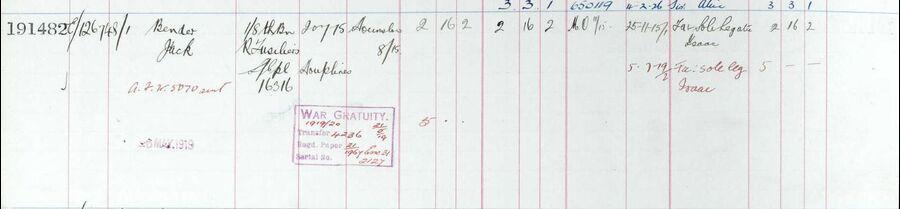 3 3 1 650119 4-2-26 Sis Alice 3 3 1
191482 E/126748/1 Bender 1/8th Bn 20 7 15 Hounslow 2 16 2 2 16 2 M.O 11/15 25-11-15 Far Sole Legatee 2 16 2
Jack R Fusiliers 8/15 Isaac
L/Cpl Houplines 5-7-19 Fa: sole leg 5 - -
A.F.W. 5070 sent 16316 Isaac
WAR GRATUITY. 5 . .
1919/20
Transfer 4236
Regd. Paper
Serial No. 2127
6 MAY 1919